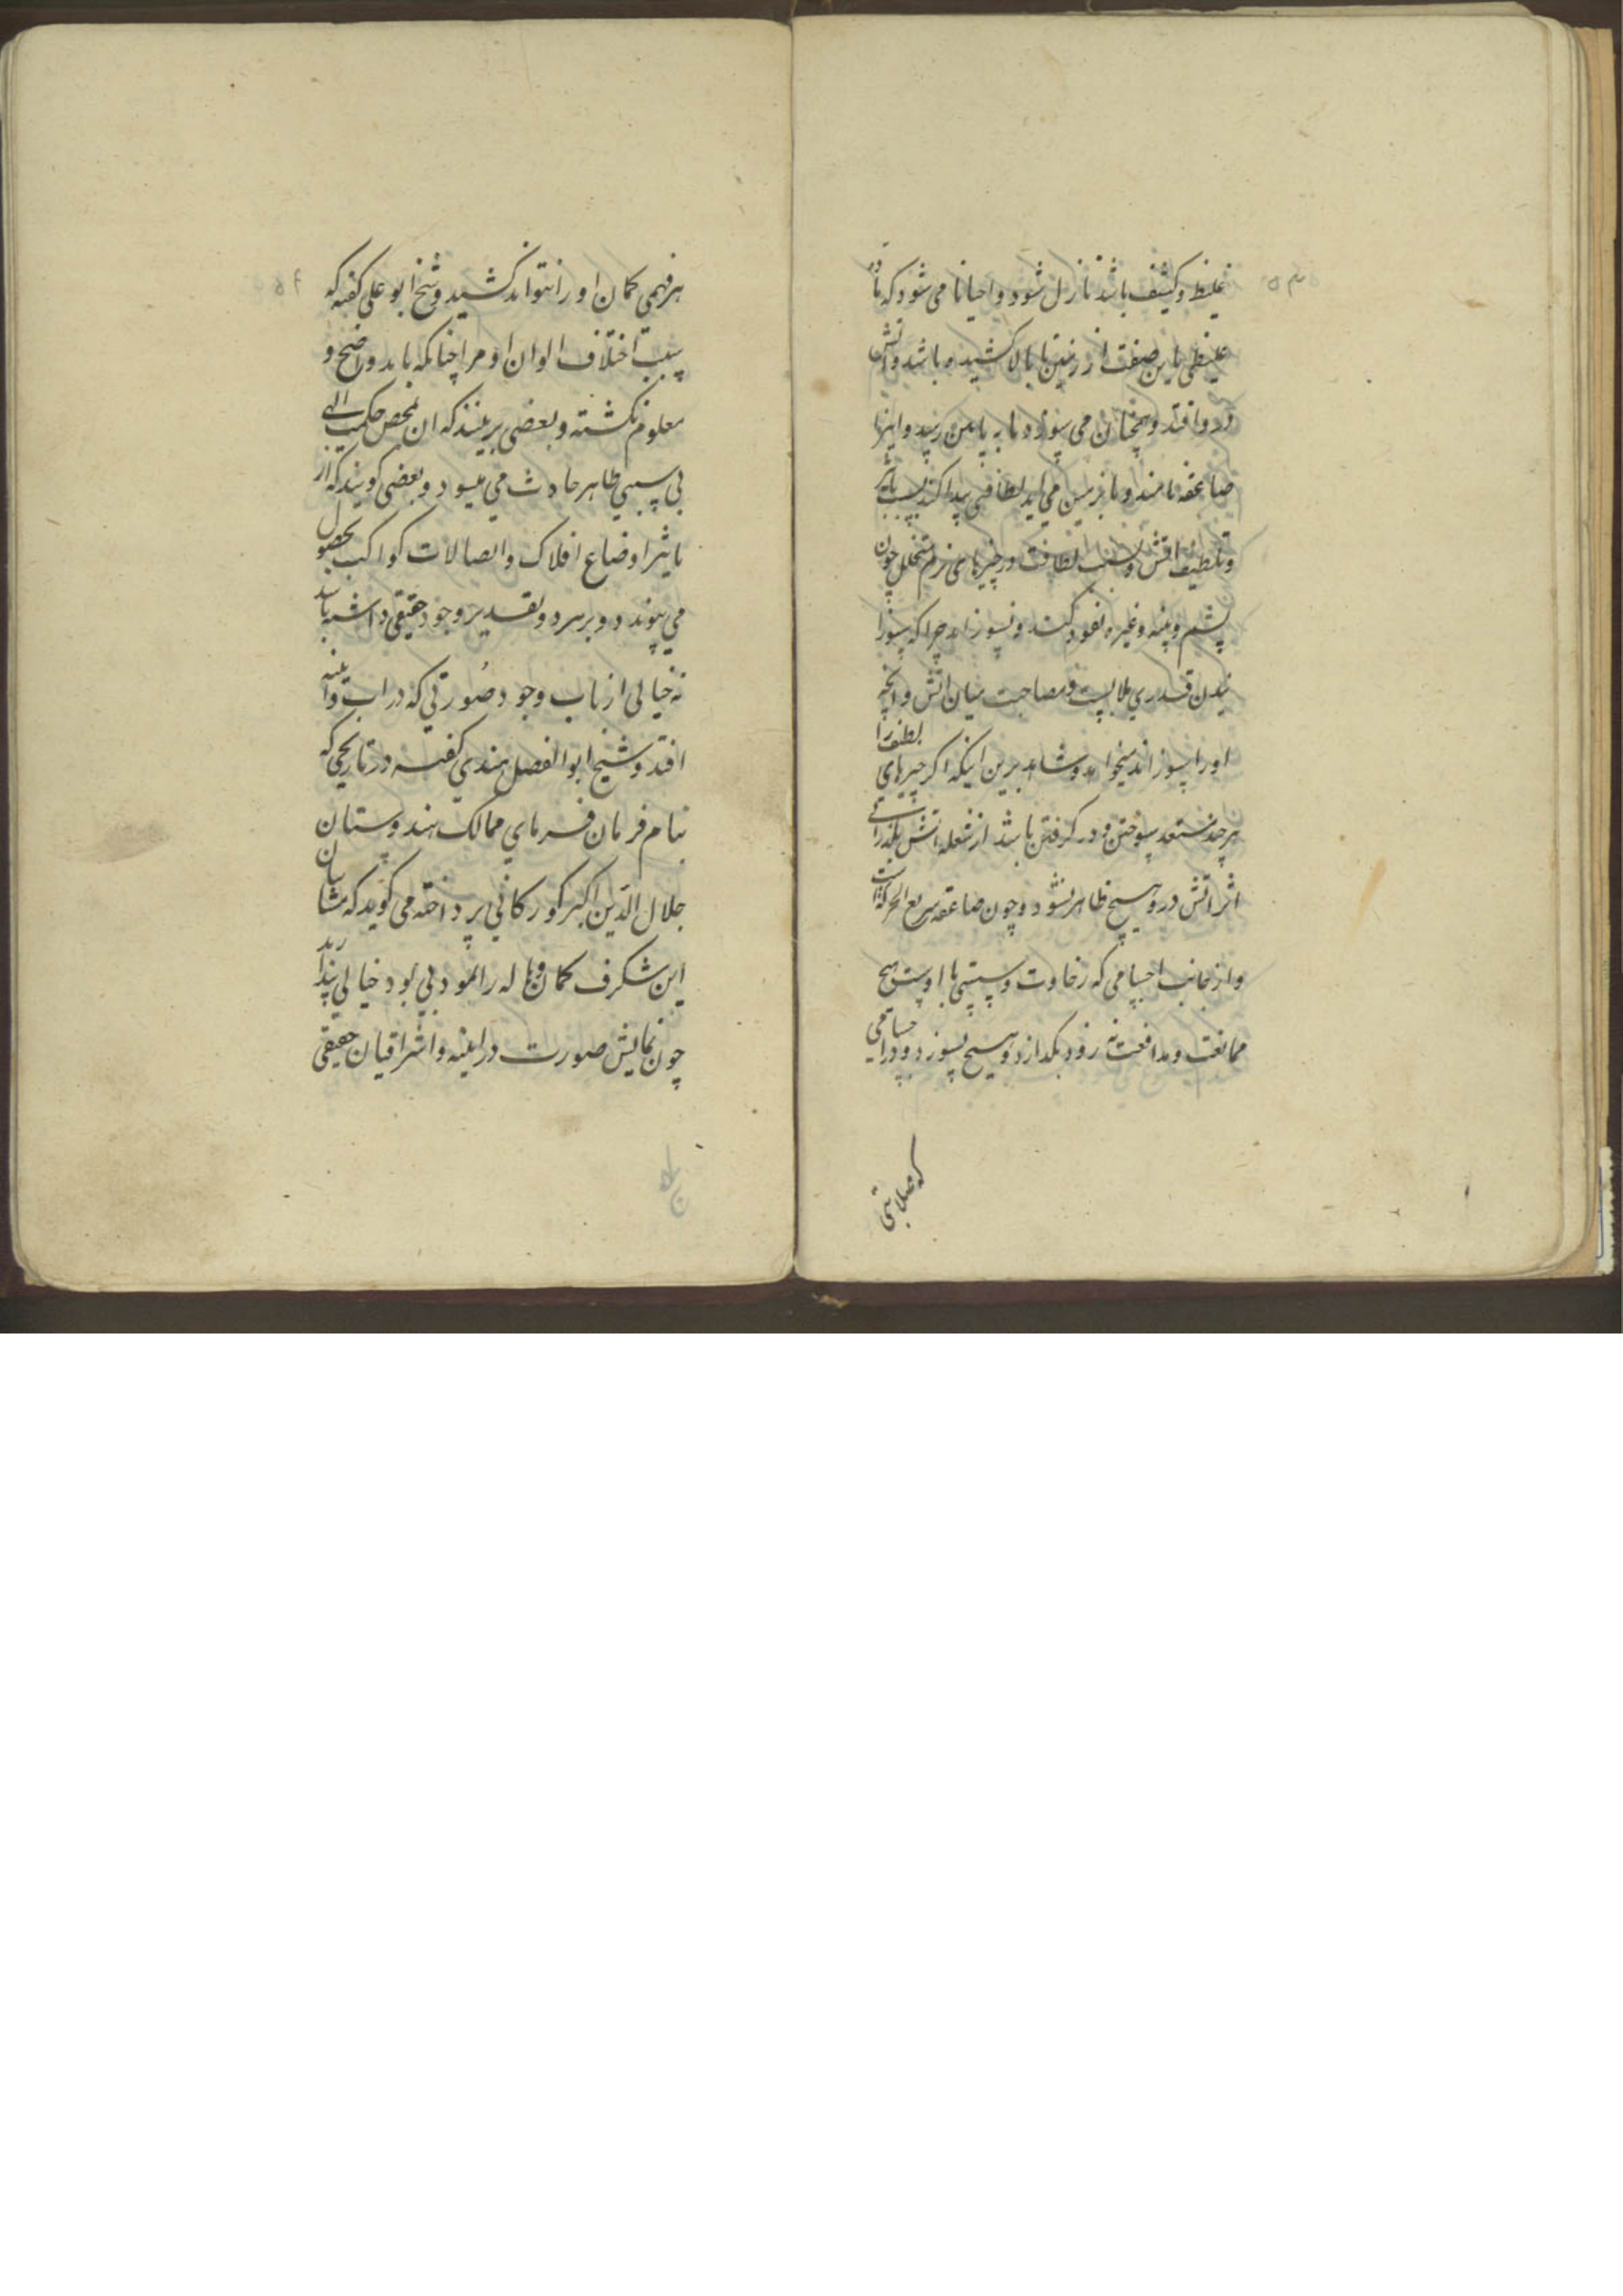 غلیظ و کثیف باشد نازل شود و احیانا می شود که مادۀ
غلیظی باین صفت از زمین تا بالا کشیده باشد و آتش
درو افتد و همچنان می سوزد تا به پایین رسد و اینرا
صاعقه نامند و تا بزمین می اید لطافتی پیدا کند بسبب تاثیر
و تلطیف اتش و بسبب لطافت در چیزهای نرم متخلخل چون
پشم و پنبه و غیره نفوذ کند و نسوزاند چرا که سوزا
نیدن قدری ملابست و مصاحبت میان اتش و انچه
او را بسوزاند میخواهد و شاهد برین اینکه اگر چیزهای لطیف را
هر چند مستعد سوختن و در گرفتن باشد از شعله اتش بگذرانے
اثر اتش درو هیچ ظاهر نشود و چون صاعقه سریع الحرکة است
و از جانب اجسامی که رخاوت و سستی با اوست هیچ
ممانعت و مدافعت نه زود بگدازد و هیچ نسوزد و در اجسامی
که صلابتی
هر فهمی کمان او را نتواند کشید و شیخ ابو علی گفته که
سبب اختلاف الوان او مرا چنانکه باید واضح و
معلوم نگشته و بعضی برینند که ان بمحض حکمت الهی
بی سببی ظاهر حادث می میسود و بعضی گویند که از
تاثیر اوضاع افلاک و اتصالات کواکب بحصول
می پیوندد و بر سر دو تقدیر وجود حقیقی داشته باشد
نه خیالی از باب وجود صُورتی که در اب و اینه
افتد و شیخ ابو الفضل هندی گفته در تاریخی که
بنام فرمان فرمای ممالک هندوستان
جلال الدّین اکبر گورکانی پرداخته می گوید که مشائیان
این شگرف کمان و هاله را نمود بی بود خیالی پندارند
چون نمایش صورت در اینه و اشراقیان حقیقی